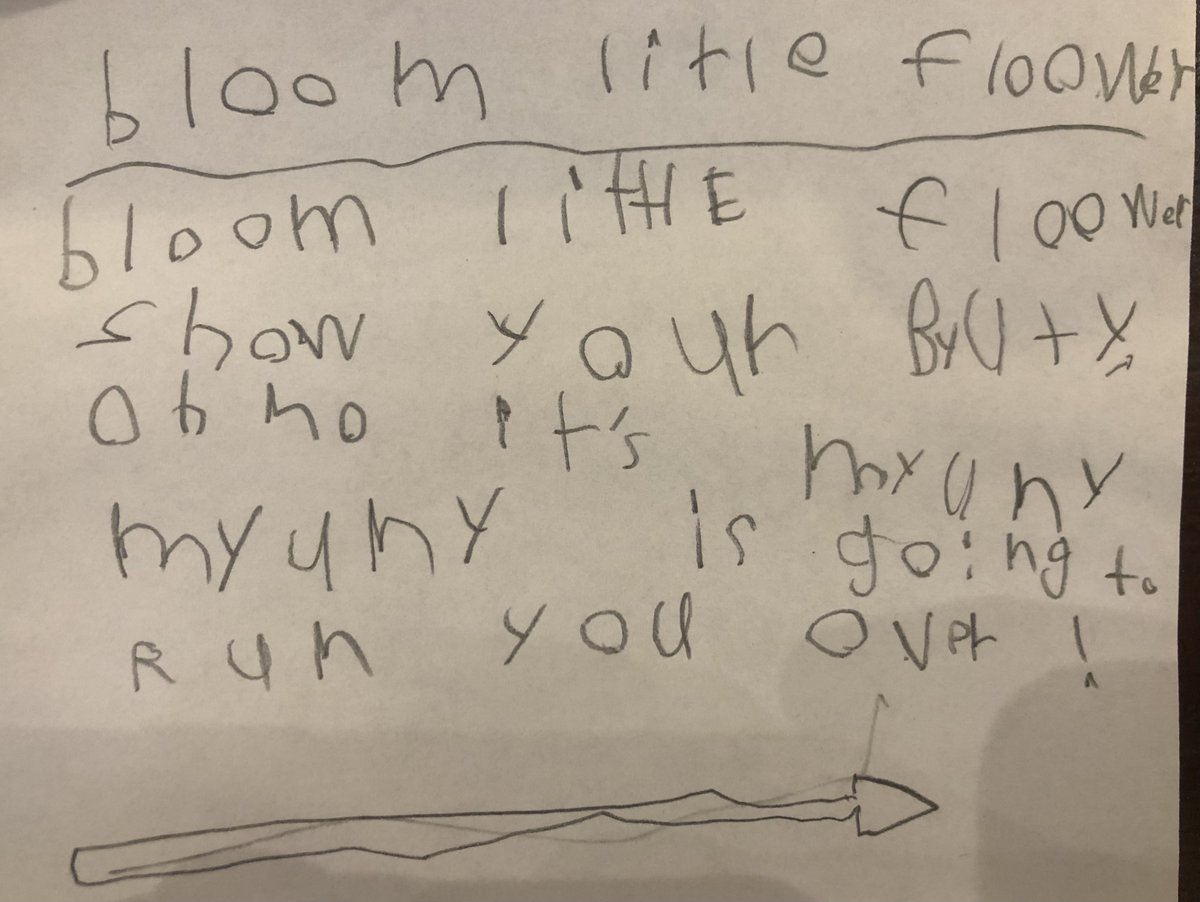 bloom litle floower
bloom little floower
show your Byuty
Oh no it's myuny
myuny is going to
Run you over!